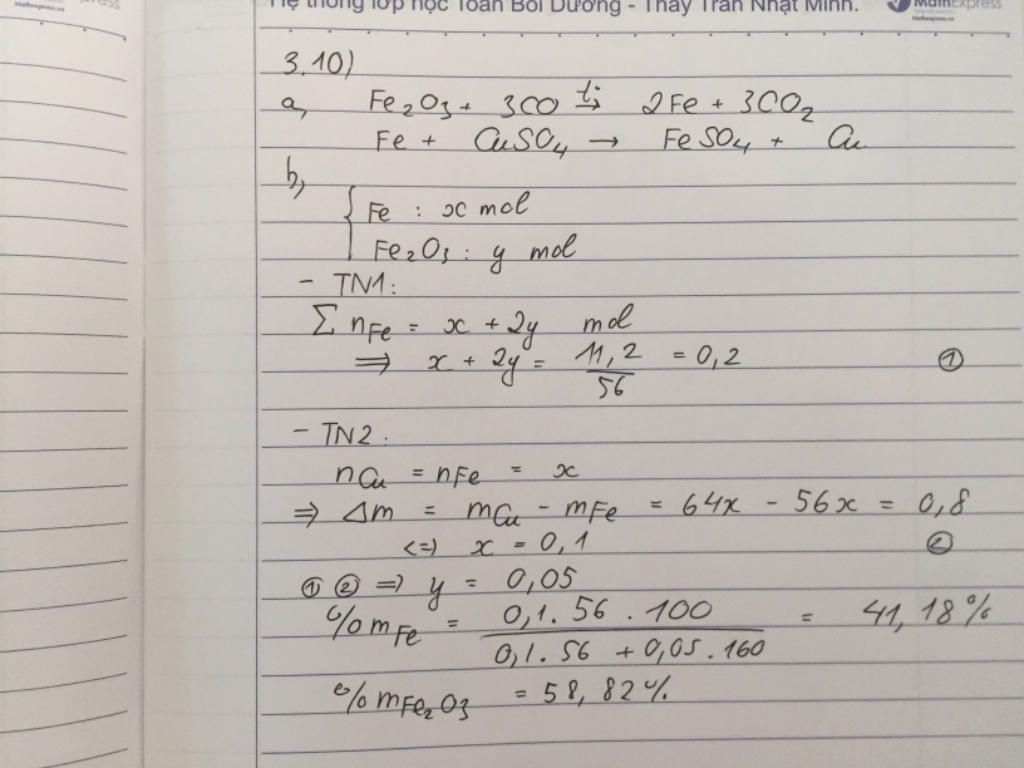 Hệ thống lớp học Toán Bồi Dưỡng - Thầy Trần Nhật Minh.
MathExpress
Mathexpress.vn
3.10)
a, Fe₂O₃ + 3CO t°→ 2Fe + 3CO₂
Fe + CuSO₄ → FeSO₄ + Cu
b,
{ Fe : x mol
Fe₂O₃ : y mol
- TN1:
Σ nFe = x + 2y mol
⇒ x + 2y = 11,2/56 = 0,2 ①
- TN2:
nCu = nFe = x
⇒ Δm = mCu - mFe = 64x - 56x = 0,8
<=> x = 0,1 ②
① ② ⇒ y = 0,05
%mFe = 0,1.56.100 / 0,1.56 + 0,05.160 = 41,18%
%mFe₂O₃ = 58,82%